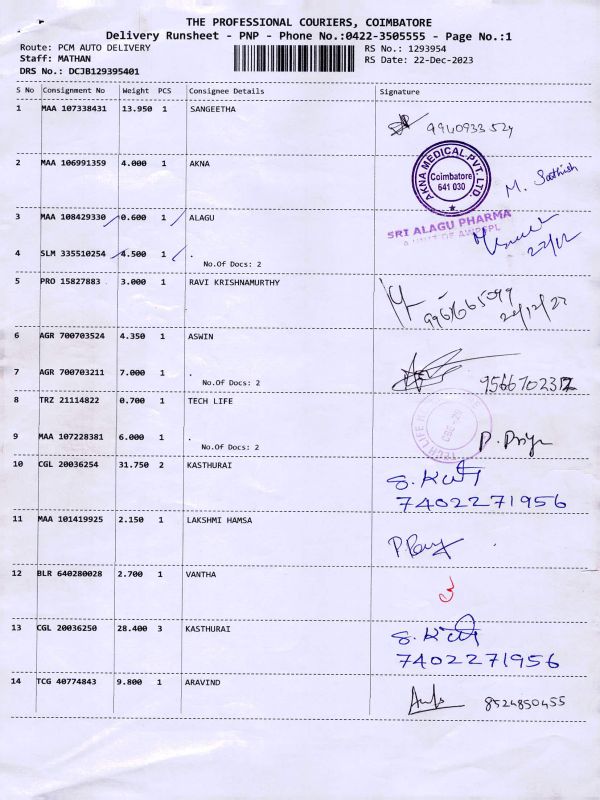 THE PROFESSIONAL COURIERS, COIMBATORE
Delivery Runsheet - PNP - Phone No.:0422-3505555 - Page No.:1
Route: PCM AUTO DELIVERY RS No.: 1293954
Staff: MATHAN RS Date: 22-Dec-2023
DRS No.: DCJB129395401
S No Consignment No Weight PCS Consignee Details Signature
1 MAA 107338431 13.950 1 SANGEETHA
9940933524
2 MAA 106991359 4.000 1 AKNA
AKNA MEDICAL PVT. LTD.
Coimbatore
641 030
M. Sathish
3 MAA 108429330 0.600 1 ALAGU
SRI ALAGU PHARMA
A UNIT OF
22/12
4 SLM 335510254 4.500 1 .
No.Of Docs: 2
5 PRO 15827883 3.000 1 RAVI KRISHNAMURTHY
6 AGR 700703524 4.350 1 ASWIN
7 AGR 700703211 7.000 1 .
No.Of Docs: 2
8 TRZ 21114822 0.700 1 TECH LIFE
TECH LIFE
CBE - 29
9 MAA 107228381 6.000 1 .
No.Of Docs: 2
P. Priya
10 CGL 20036254 31.750 2 KASTHURAI
7402271956
11 MAA 101419925 2.150 1 LAKSHMI HAMSA
12 BLR 640280028 2.700 1 VANTHA
13 CGL 20036250 28.400 3 KASTHURAI
7402271956
14 TCG 40774843 9.800 1 ARAVIND
8524850455